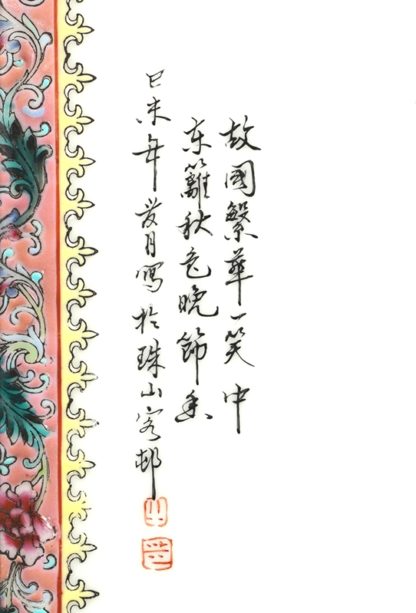 故國繁華一笑中
东籬秋色晚節香
己未年月寫於珠山客邨